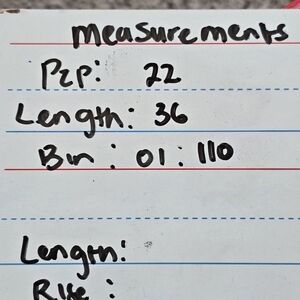 Measurements
P2P: 22
Length: 36
Bin : 01 : 110
Length:
Rise :